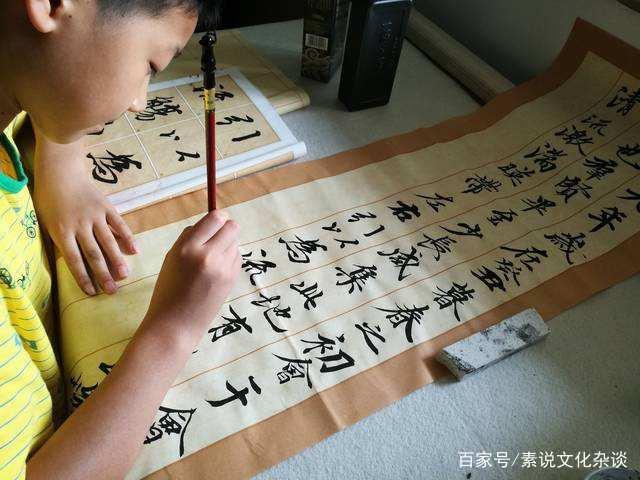 九年歲在癸丑暮春之初會于會
也群賢畢至少長咸集此地有
清流激湍映帶左右引以為流
引以為
觴
百家号/素说文化杂谈